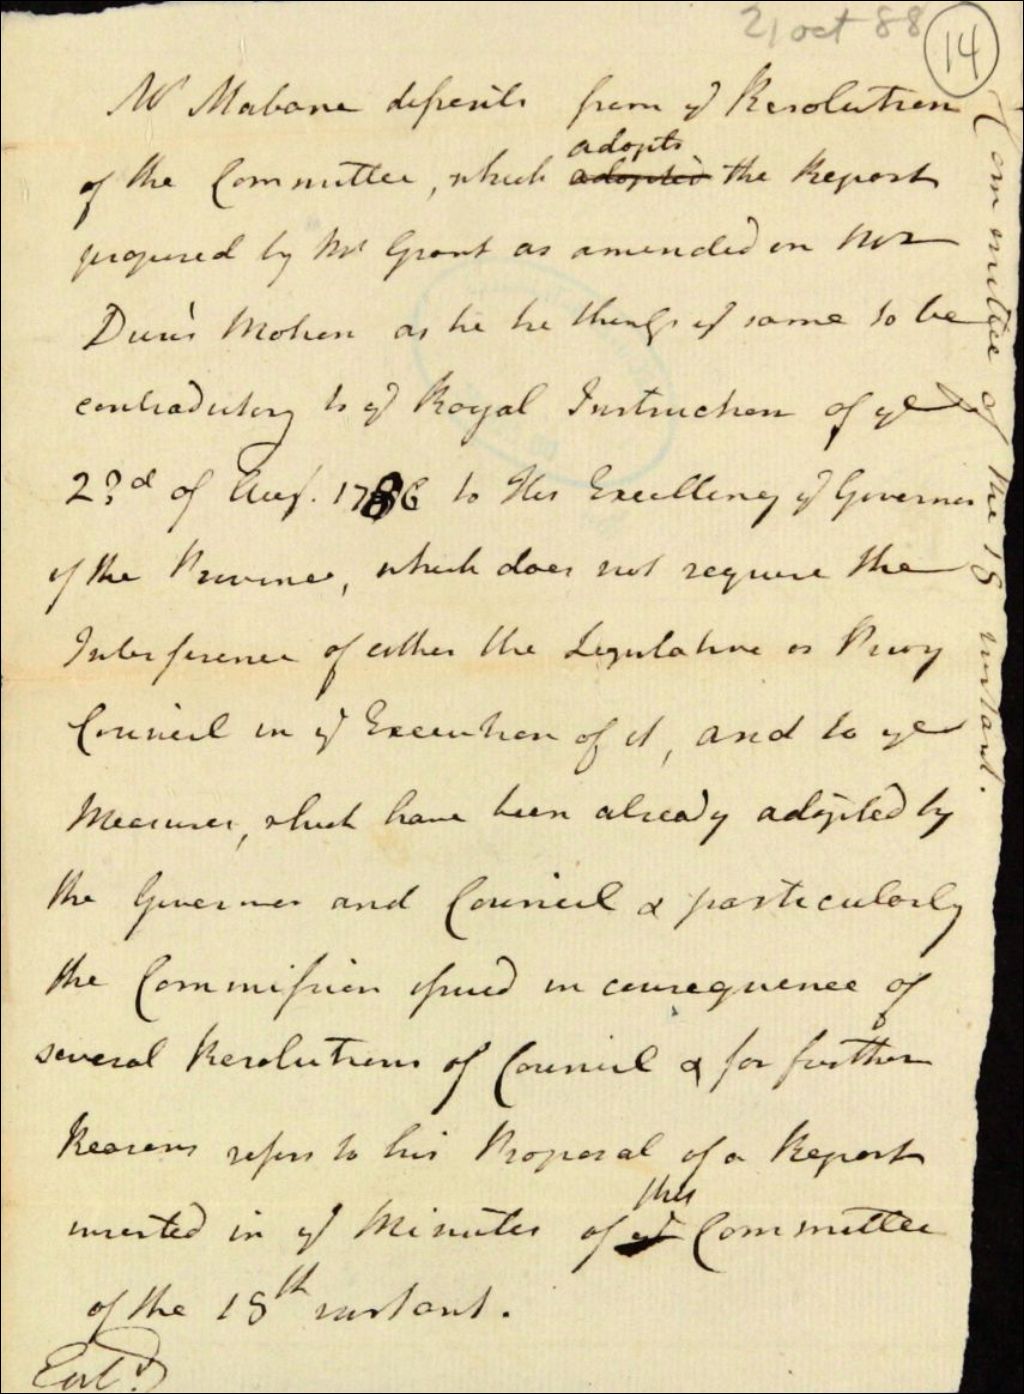 21 oct 88
14
Mr Mabane dissents from ye Resolution
adopts
of the Committee, which adopted the Report
prepared by Mr Grant as amended on Mr
Dunn's Motion as he he thinks ye same to be
contradictory to ye Royal Instruction of ye
23d of Aug. 1786 to His Excellency ye Governor
of the Province, which does not require the
Interference of either the Legislative or Privy
Council in ye Execution of it, and to ye
Measures, which have been already adopted by
the Governor and Council & particularly
the Commission issued in consequence of
several Resolutions of Council & for further
Reasons refers to his Proposal of a Report
this
inserted in ye Minutes of ye Committee
of the 18th instant.
Entd.
Committee of the 18 instant.